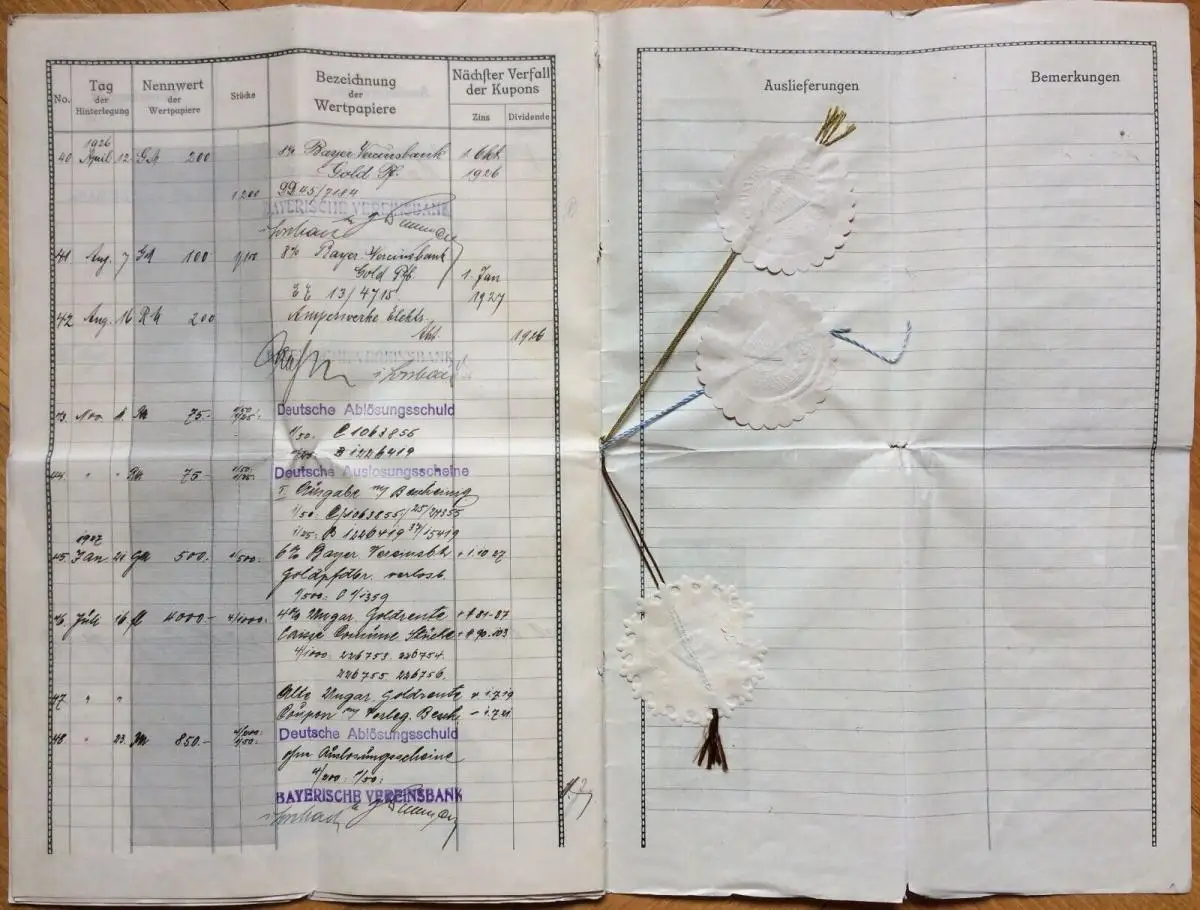 No.
Tag
der
Hinterlegung
Nennwert
der
Wertpapiere
Stücke
Bezeichnung
der
Wertpapiere
Nächster Verfall
der Kupons
Zins
Dividende
1926
40 April 12 GM 200 8% Bayer Vereinsbank 1. Okt.
Gold Pf. 1926
1200
BAYERISCHE VEREINSBANK
41 Aug. 7 GM 100 1/100 8% Bayer. Vereinsbank
Gold Pf. 1. Jan
13/4715. 1927
42 Aug. 16 RM 200 Amperwerke Elekts.
Akt. 1926
VEREINSBANK
43 Nov. RM 75.- 1/50 1/25 Deutsche Ablösungsschuld
1/50: C 1063855
1/25 B 1226419
44 " " RM 75.- 1/50 1/25 Deutsche Auslosungsscheine
I. Ausgabe
1/50: C/1063855/25/
1/25: B 1226419 37/15419
1927
45 Jan 21 GM 500.- 1/500: 6% Bayer. Vereinsbk + 1.10 27
Goldpfdbr. verlost.
1/500:
46 Juli 16 fl 4000.- 4/1000: 4% Ungar. Goldrente
Caisse Comune Stücke
4/1000: 226753 226754
226755 226756.
47 " " Alte Ungar. Goldrente
Coupon
48 " 23. 850.- 4/200: 1/50: Deutsche Ablösungsschuld
ohne Auslosungsscheine
4/200: 1/50:
BAYERISCHE VEREINSBANK
Auslieferungen
Bemerkungen